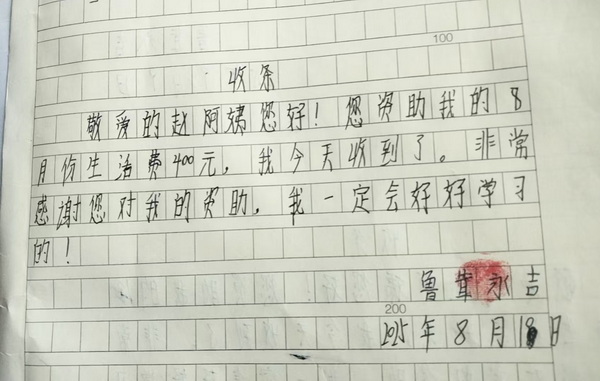 100
收条
敬爱的赵阿姨您好！您资助我的8
月份生活费400元，我今天收到了。非常
感谢您对我的资助，我一定会好好学习
的！
鲁 永吉
200
2025年8月 日